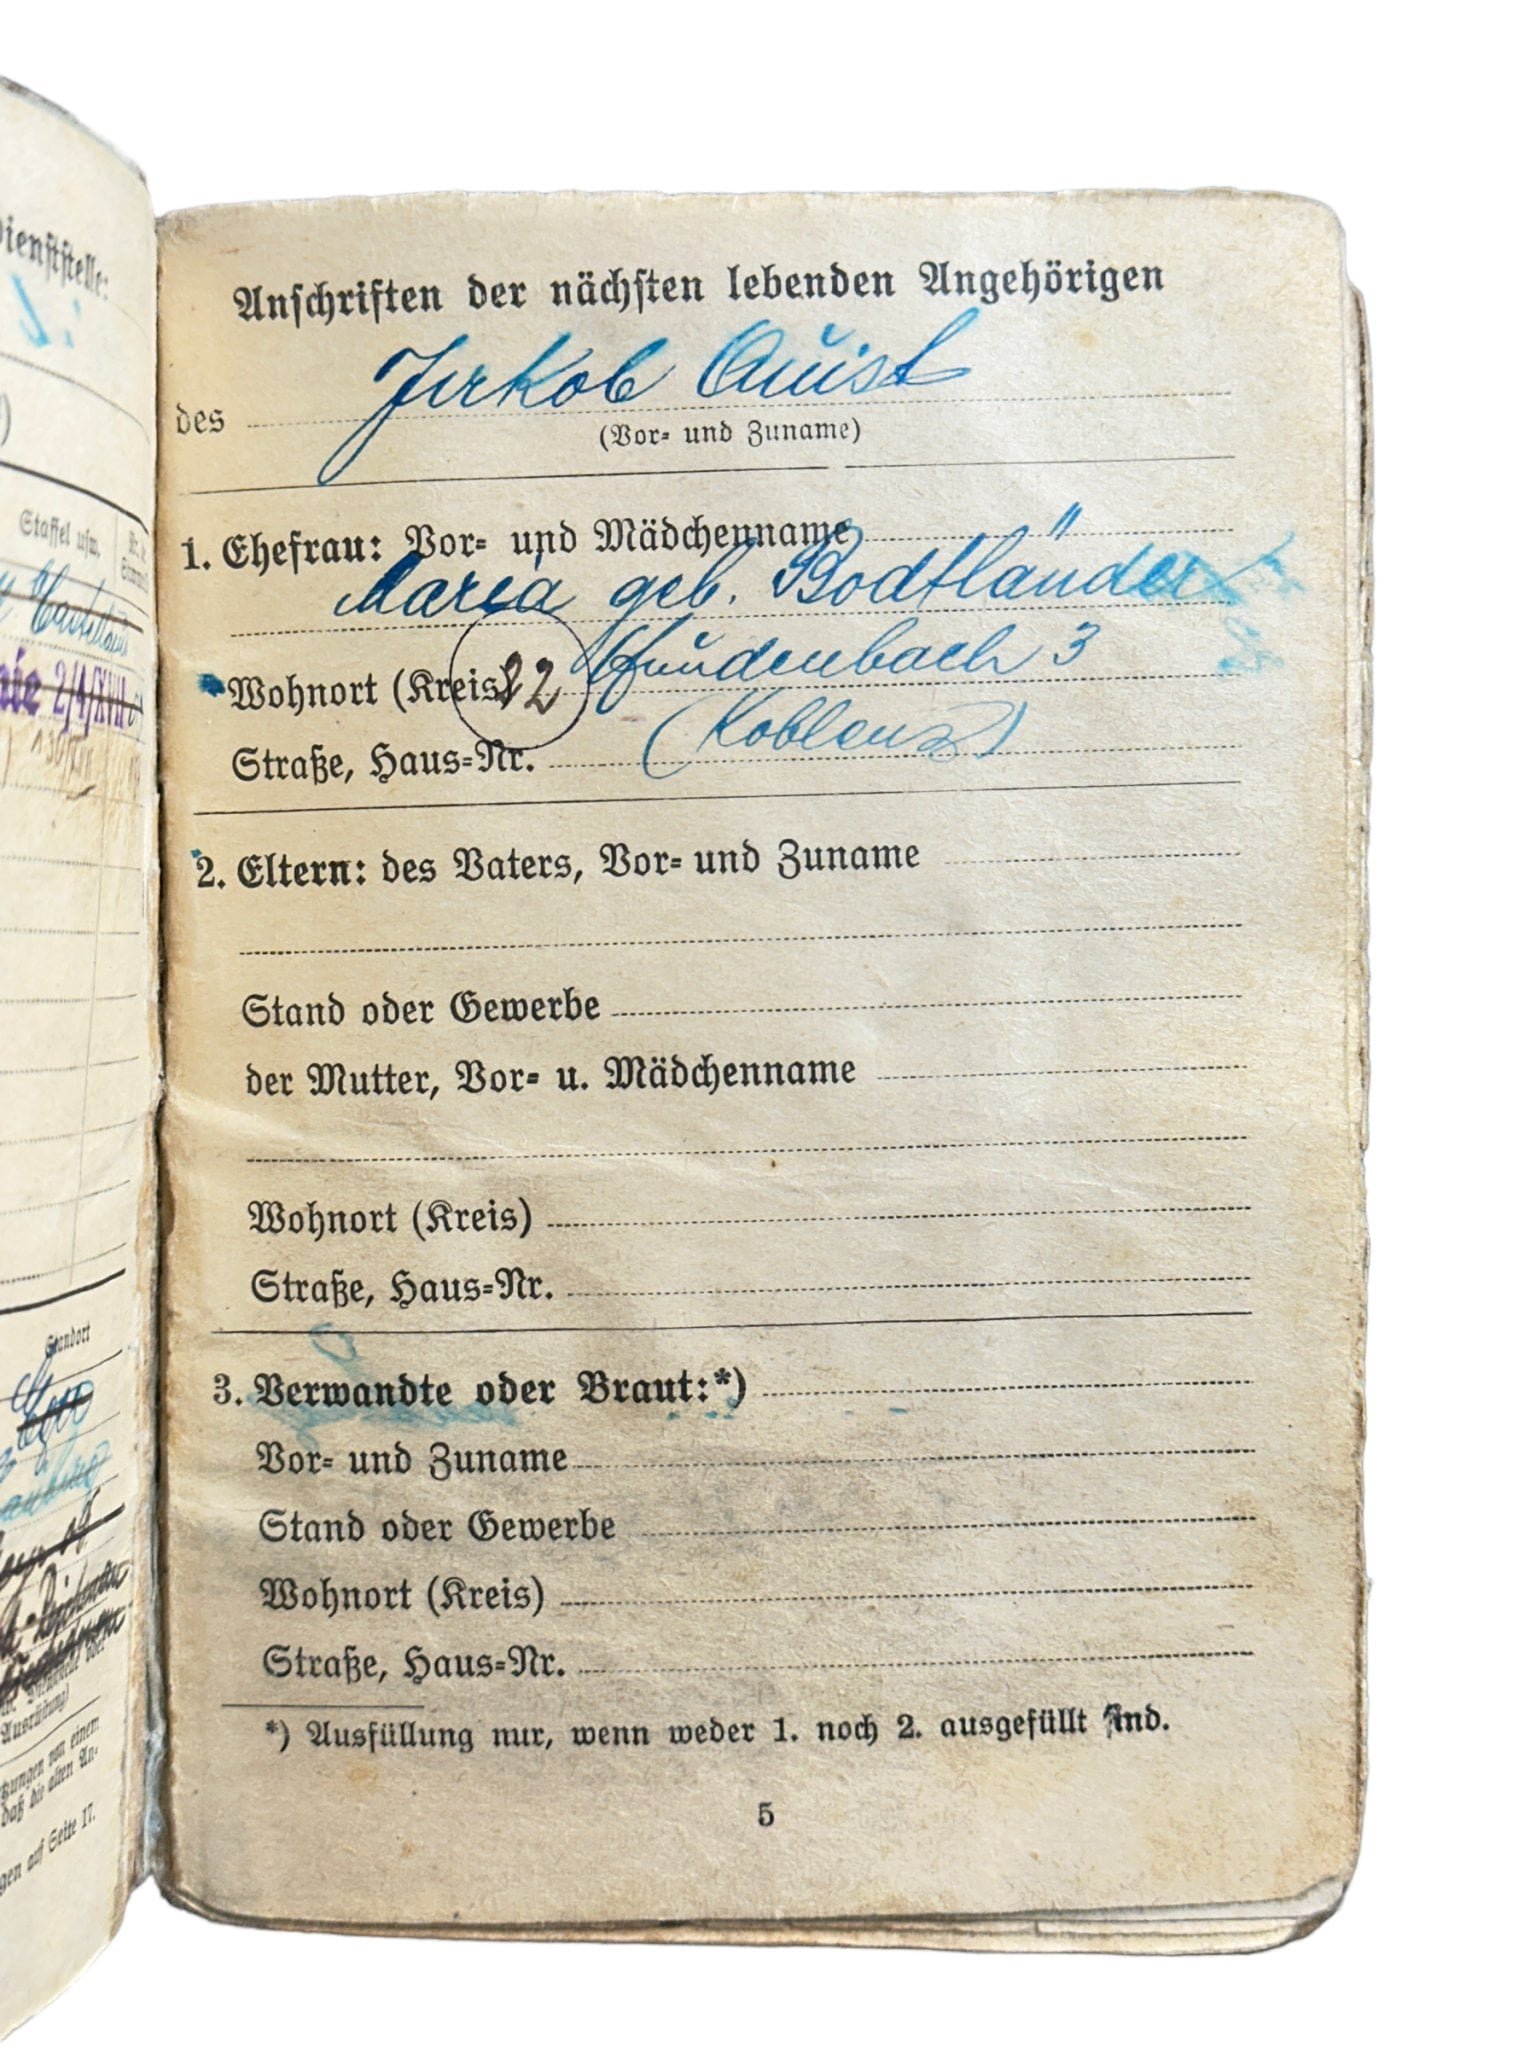 Dienststelle:
Staffel usw.
2/4/XVII
Standort
Ausrüstung)
tzungen von einem
daß die alten An-
gen auf Seite 17.
Anschriften der nächsten lebenden Angehörigen
des Jakob Auist
(Vor- und Zuname)
1. Ehefrau: Vor- und Mädchenname
Maria geb. Bodtländer
Wohnort (Kreis) 3
22
Straße, Haus-Nr. (Koblenz)
2. Eltern: des Vaters, Vor- und Zuname
Stand oder Gewerbe
der Mutter, Vor- u. Mädchenname
Wohnort (Kreis)
Straße, Haus-Nr.
3. Verwandte oder Braut:*)
Vor- und Zuname
Stand oder Gewerbe
Wohnort (Kreis)
Straße, Haus-Nr.
*) Ausfüllung nur, wenn weder 1. noch 2. ausgefüllt sind.
5